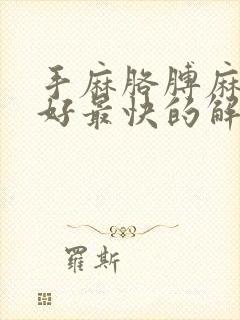 手麻胳膊麻
好最快的解
羅斯